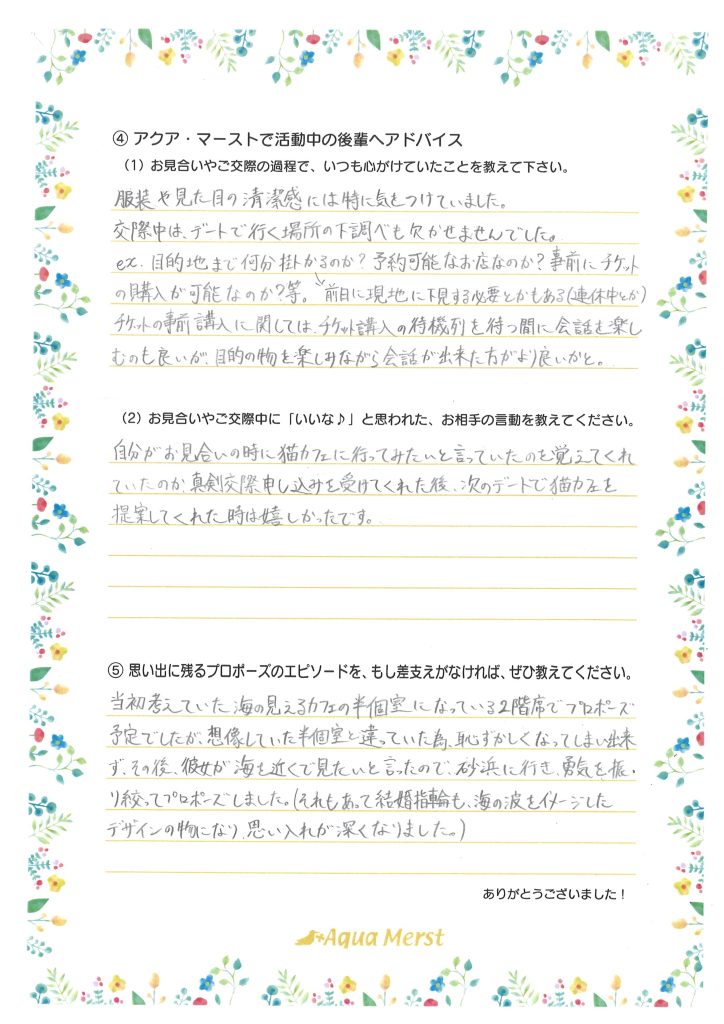 ④ アクア・マーストで活動中の後輩へアドバイス
（1）お見合いやご交際の過程で、いつも心がけていたことを教えて下さい。
服装や見た目の清潔感には特に気をつけていました。
交際中は、デートで行く場所の下調べも欠かせませんでした。
ex. 目的地まで何分掛かるのか？予約可能なお店なのか？事前にチケット
の購入が可能なのか？等。→前日に現地に下見する必要とかもある（連休中とか）
チケットの事前講入に関しては、チケット講入の待機列を待つ間に会話を楽し
むのも良いが、目的の物を楽しみながら会話が出来た方がより良いかと。
（2）お見合いやご交際中に「いいな♪」と思われた、お相手の言動を教えてください。
自分がお見合いの時に猫カフェに行ってみたいと言っていたのを覚えてくれ
ていたのか、真剣交際申し込みを受けてくれた後、次のデートで猫カフェを
提案してくれた時は嬉しかったです。
⑤ 思い出に残るプロポーズのエピソードを、もし差支えがなければ、ぜひ教えてください。
当初考えていた海の見えるカフェの半個室になっている2階席でプロポーズ
予定でしたが、想像していた半個室と違っていた為、恥ずかしくなってしまい出来
ず、その後、彼女が海を近くで見たいと言ったので、砂浜に行き、勇気を振・
り絞ってプロポーズしました。（それもあって結婚指輪も、海の波をイメージした
デザインの物になり、思い入れが深くなりました。）
ありがとうございました！
Aqua Merst